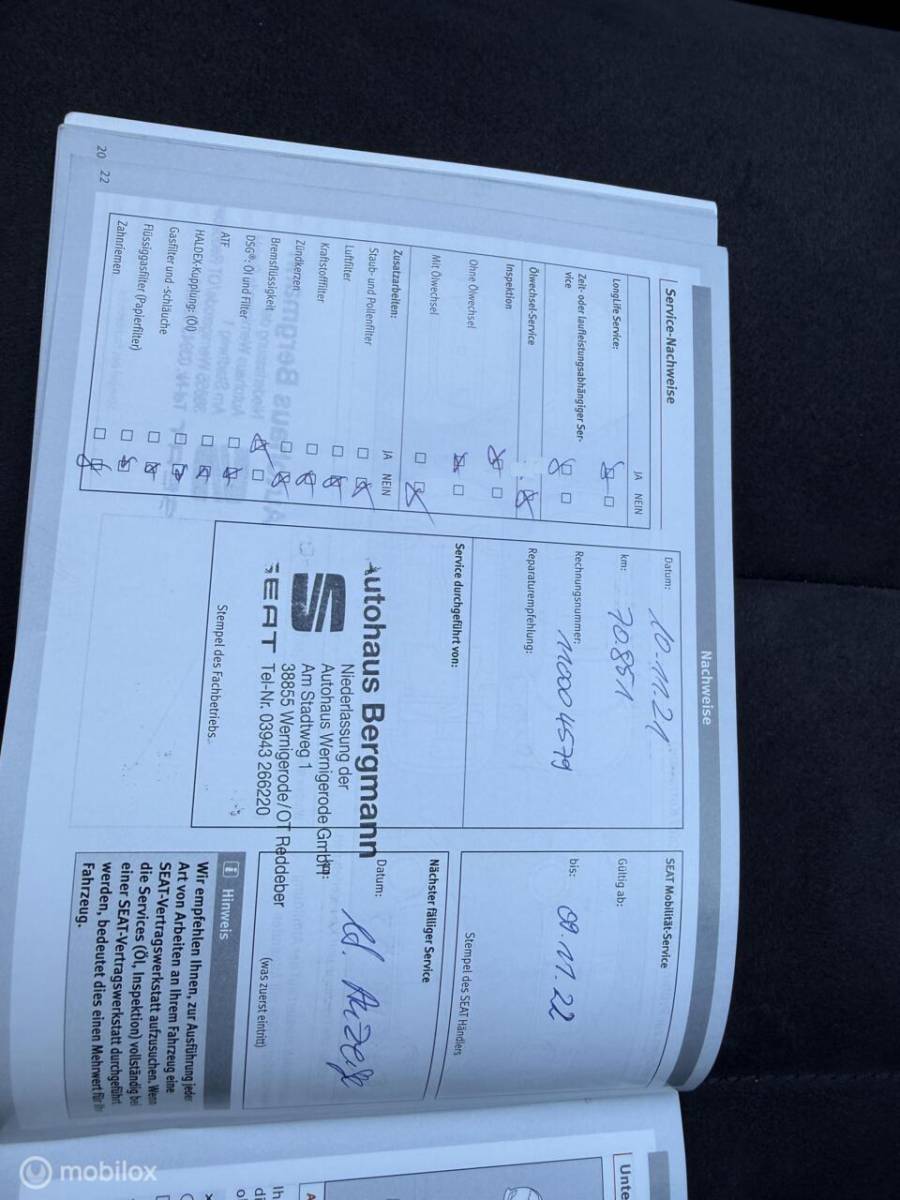 Nachweise
Service-Nachweise
JA NEIN
LongLife Service:
Zeit- oder laufleistungsabhängiger Ser-
vice
Ölwechsel-Service
Inspektion
Ohne Ölwechsel
Mit Ölwechsel
Zusatzarbeiten:
JA NEIN
Staub- und Pollenfilter
Luftfilter
Kraftstofffilter
Zündkerzen
Bremsflüssigkeit
DSG®: Öl und Filter
ATF
HALDEX-Kupplung: (Öl)
Gasfilter und -schläuche
Flüssiggasfilter (Papierfilter)
Zahnriemen
Datum: 10.11.21
km: 70851
Rechnungsnummer: 110004579
Reparaturempfehlung:
Service durchgeführt von:
Autohaus Bergmann
Niederlassung der
Autohaus Wernigerode GmbH
Am Stadtweg 1
38855 Wernigerode/OT Reddeber
SEAT Tel-Nr. 03943 266220
Stempel des Fachbetriebs.
SEAT Mobilität-Service
Gültig ab:
bis: 09.11.22
Stempel des SEAT Händlers
Nächster fälliger Service
Datum:
(was zuerst eintritt)
i Hinweis
Wir empfehlen Ihnen, zur Ausführung jeder
Art von Arbeiten an Ihrem Fahrzeug eine
SEAT-Vertragswerkstatt aufzusuchen. Wenn
die Services (Öl, Inspektion) vollständig bei
einer SEAT-Vertragswerkstatt durchgeführt
werden, bedeutet dies einen Mehrwert für Ihr
Fahrzeug.
20 22
Unte
Ih
di
mobilox